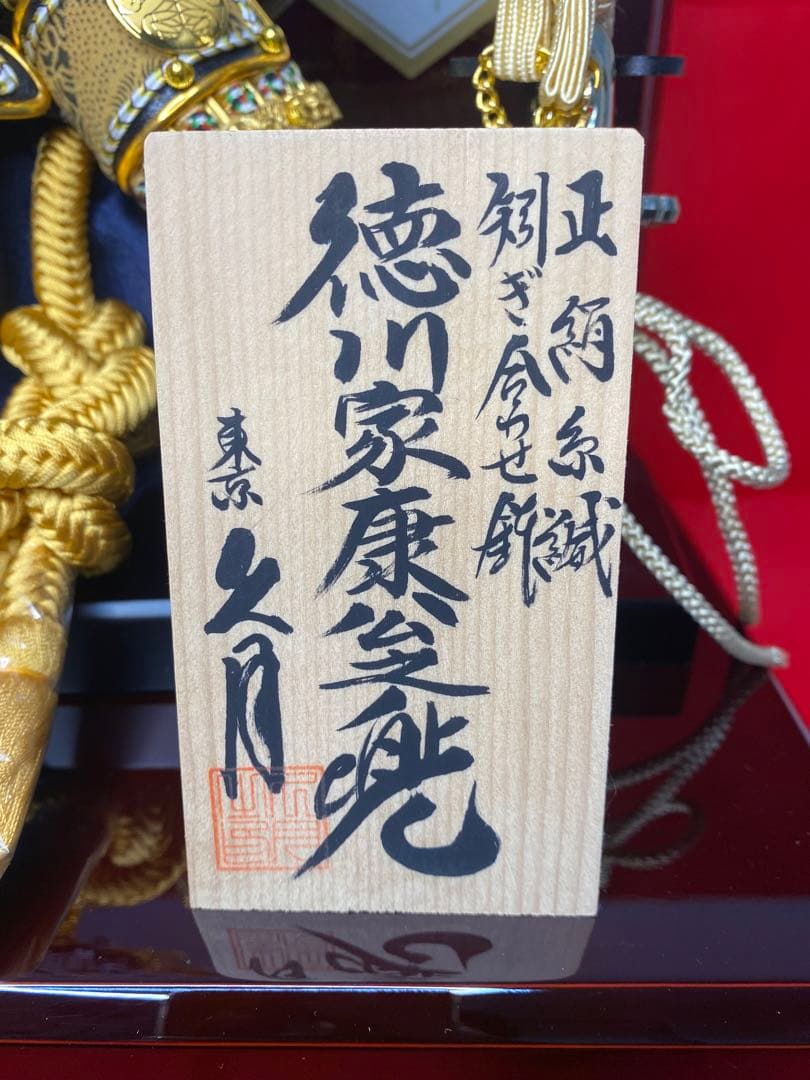 正絹糸縅
矧ぎ合わせ鉢
徳川家康公之兜
東京 久月